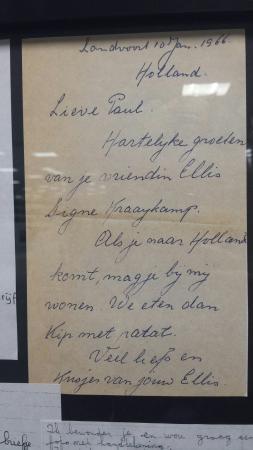 Zandvoort 10 Jan. 1966.
Holland.
Lieve Paul.
Hartelyke groeten
van je vriendin Ellis
Signe Kraaykamp.
Als je naar Holland
komt, mag je by my
wonen. We eten dan
Kip met patat.
Veel liefs en
Kusjes van jouw Ellis.
rijf
briefje
Ik bewonder je en wou graag een
foto met handtekening.